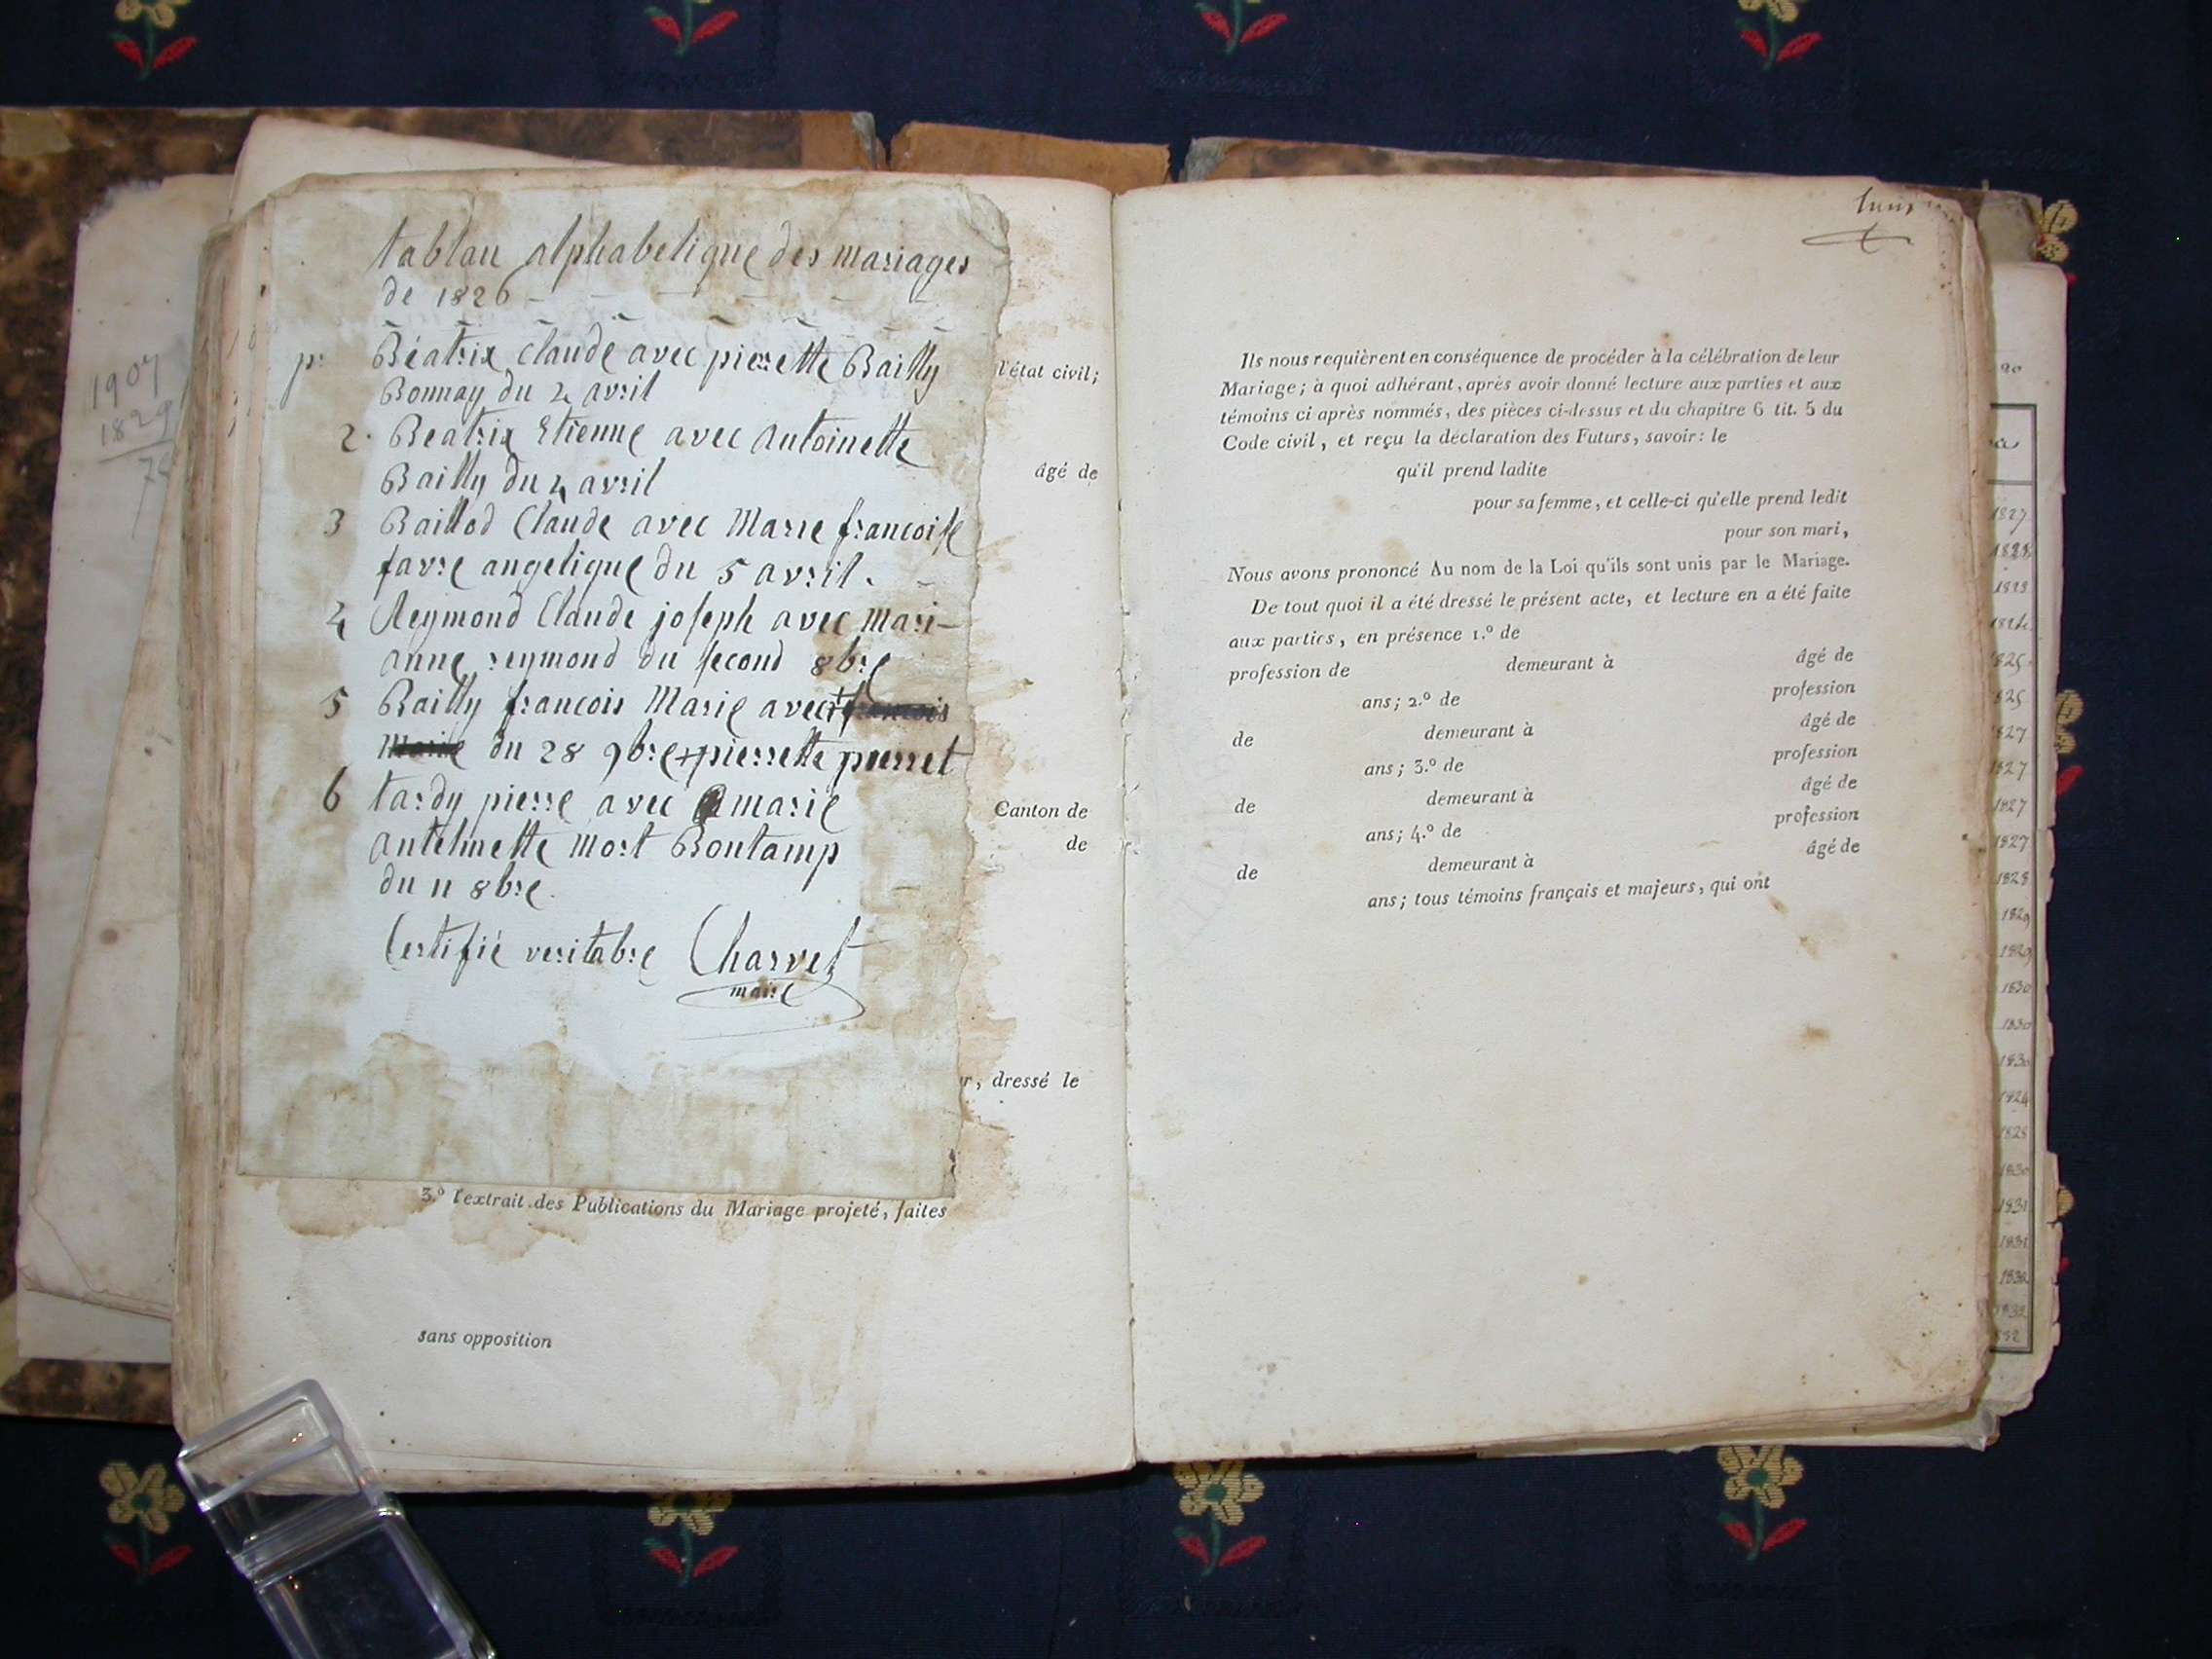 1907
1829
78
tablau alphabetique des mariages
de 1826
pr Béatrix Claude avec pierrette Bailly
Bonnay du 4 avril
2. Beatrix Etienne avec antoinette
Bailly du 4 avril
3 Baillod Claude avec Marie francoise
favre angelique du 5 avril.
4 Reymond Claude joseph avec Mari-
anne reymond du second 8bre
5 Bailly francois Marie avec + francois
Marie du 28 9bre + pierrette pierret
6 tardy pierre avec marie
antelmette Mort Bontamp
du 11 8bre.
Certifié veritabre Charvet
maire
l'état civil;
âgé de
Canton de
de
r, dressé le
3.º l'extrait des Publications du Mariage projeté, faites
sans opposition
Ils nous requièrent en conséquence de procéder à la célébration de leur
Mariage; à quoi adhérant, après avoir donné lecture aux parties et aux
témoins ci après nommés, des pièces ci-dessus et du chapitre 6 tit. 5 du
Code civil, et reçu la déclaration des Futurs, savoir: le
qu'il prend ladite
pour sa femme, et celle-ci qu'elle prend ledit
pour son mari,
Nous avons prononcé Au nom de la Loi qu'ils sont unis par le Mariage.
De tout quoi il a été dressé le présent acte, et lecture en a été faite
aux parties, en présence 1.º de
profession de demeurant à âgé de
ans; 2.º de profession
de demeurant à âgé de
ans; 3.º de profession
de demeurant à âgé de
ans; 4.º de profession
de demeurant à âgé de
ans; tous témoins français et majeurs, qui ont
1827
1828
1824
1825
1827
1827
1827
1827
1828
1829
1829
1830
1830
1830
1824
1828
1830
1831
1831
1832
1832